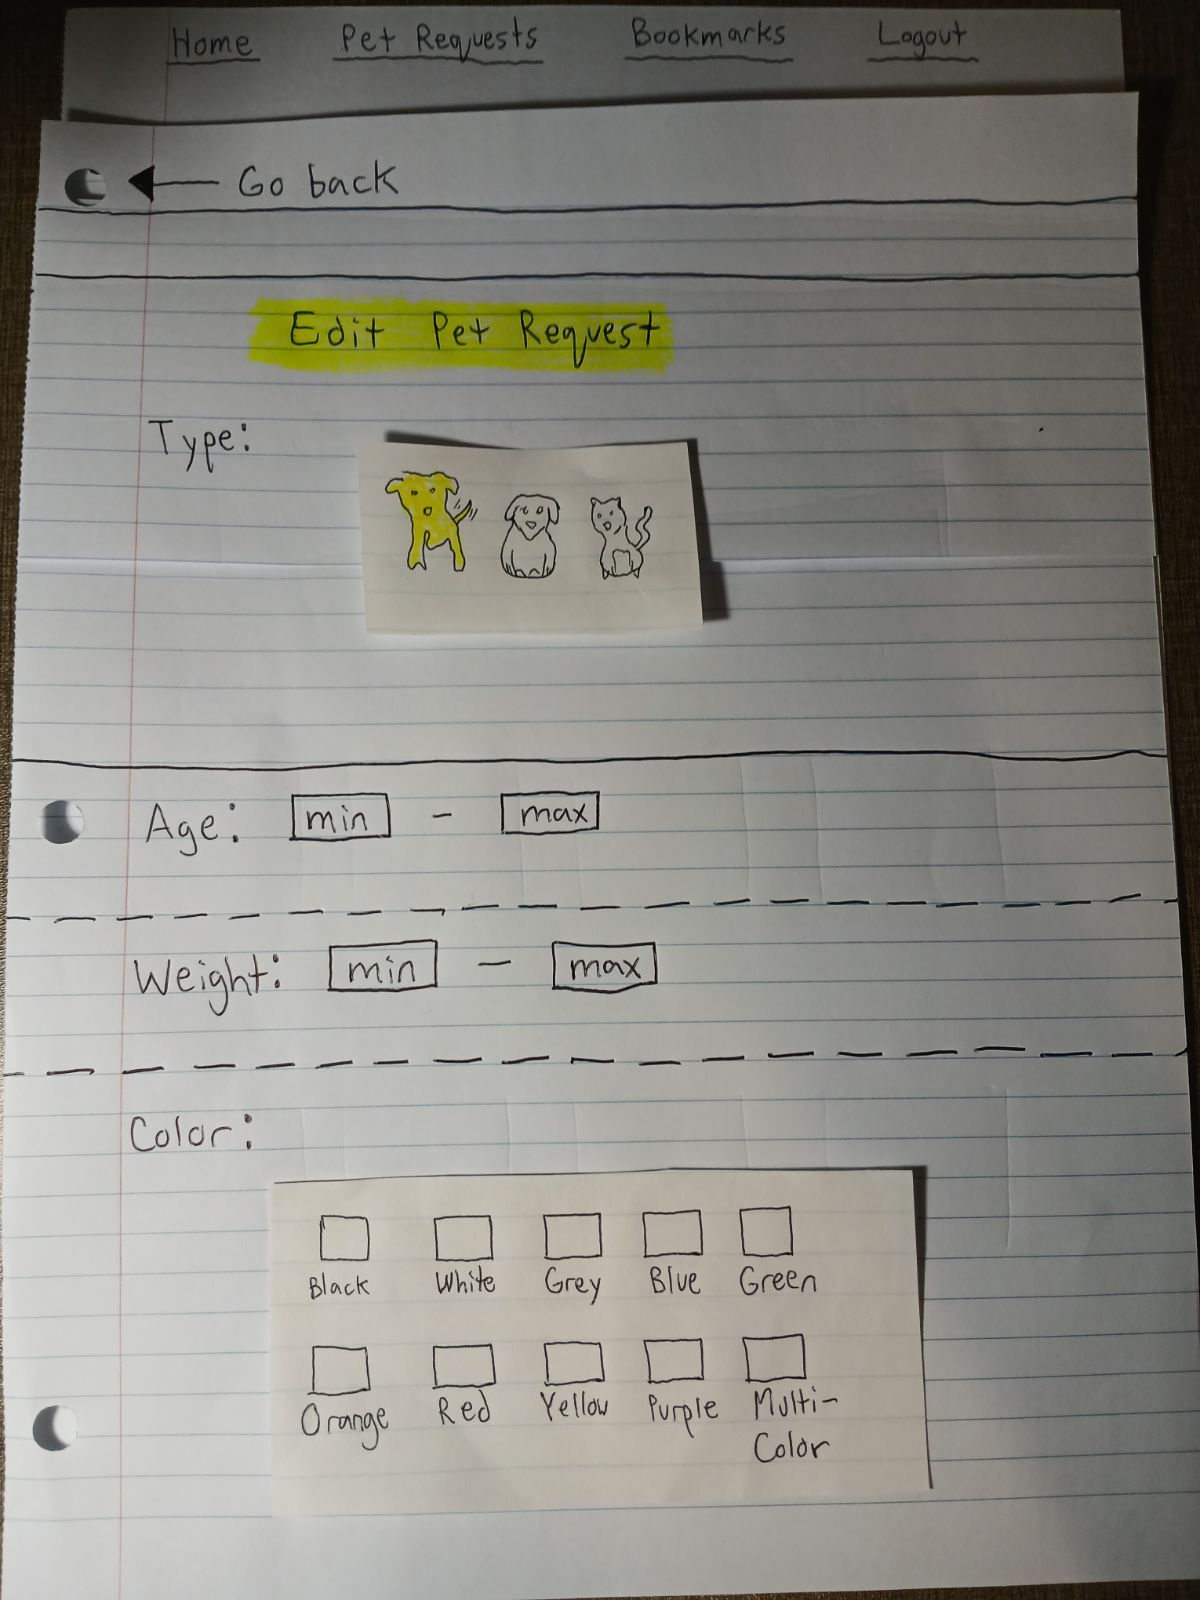 Home Pet Requests Bookmarks Logout
Go back
Edit Pet Request
Type:
Age: min - max
Weight: min - max
Color:
Black White Grey Blue Green
Orange Red Yellow Purple Multi-
Color